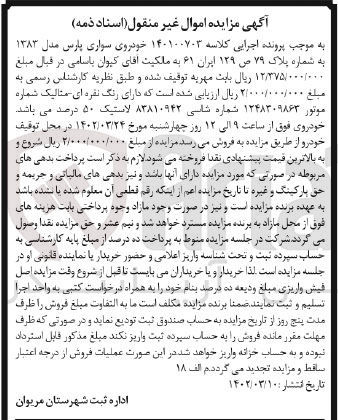 آگهی مزایده اموال غیر منقول(اسناد ذمه)
به موجب پرونده اجرایی کلاسه ۱۴۰۱۰۰۷۰۳ خودروی سواری پارس مدل ۱۳۸۳
به شماره پلاک ۷۹ ص ۱۲۹ ایران ۶۱ به مالکیت آقای کیوان باسامی در قبال مبلغ
۱۲/۳۷۵/۰۰۰/۰۰۰ ریال بابت مهریه توقیف شده و طبق نظریه کارشناس رسمی به
مبلغ ۲/۰۰۰/۰۰۰/۰۰۰ ریال ارزیابی شده است که دارای رنگ نقره ای-متالیک شماره
موتور ۱۲۴۸۳۰۹۸۶۳ شماره شاسی ۸۳۸۱۰۹۴۲ لاستیک ۵۰ درصد می باشد.
خودروی فوق از ساعت ۹ الی ۱۲ روز چهارشنبه مورخ ۱۴۰۲/۰۳/۲۴ در محل توقیف
خودرو از طریق مزایده به فروش می رسد.مزایده از مبلغ ۲/۰۰۰/۰۰۰/۰۰۰ ریال شروع و
به بالاترین قیمت پیشنهادی نقدا فروخته می شود.لازم به ذکر است پرداخت بدهی های
مربوطه در صورتی که مورد مزایده دارای آنها باشد و نیز بدهی های مالیاتی و جریمه و
حق پارکینگ و غیره تا تاریخ مزایده اعم از اینکه رقم قطعی آن معلوم شده یا نشده باشد
به عهده برنده مزایده است و نیز در صورت وجود مازاد وجوه پرداختی بابت هزینه های
فوق از محل مازاد به برنده مزایده مسترد خواهد شد و نیم عشر و حق مزایده نقدا وصول
می گردد.شرکت در جلسه مزایده منوط به پرداخت ده درصد از مبلغ پایه کارشناسی به
حساب سپرده ثبت و تحت شناسه واریز اعلامی و حضور خریدار یا نماینده قانونی او در
جلسه مزایده است.لذا خریدار و یا خریداران می بایست تا قبل از شروع وقت مزایده اصل
فیش واریزی مبلغ ودیعه ده درصد بنام خود را به همراه درخواست کتبی به واحد اجرا
تسلیم و ثبت نمایند.ضمنا برنده مزایده مکلف است ما به التفاوت مبلغ فروش را ظرف
مدت پنج روز از تاریخ مزایده به حساب صندوق ثبت تودیع نماید و در صورتی که ظرف
مهلت مقرر مانده فروش را به حساب سپرده ثبت واریز نکند مبلغ مذکور قابل استرداد
نبوده و به حساب خزانه واریز خواهد شد.در این صورت عملیات فروش از درجه اعتبار
ساقط و مزایده تجدید می گردد.م الف ۱۸
تاریخ انتشار: ۱۴۰۲/۰۳/۱۰
اداره ثبت شهرستان مریوان